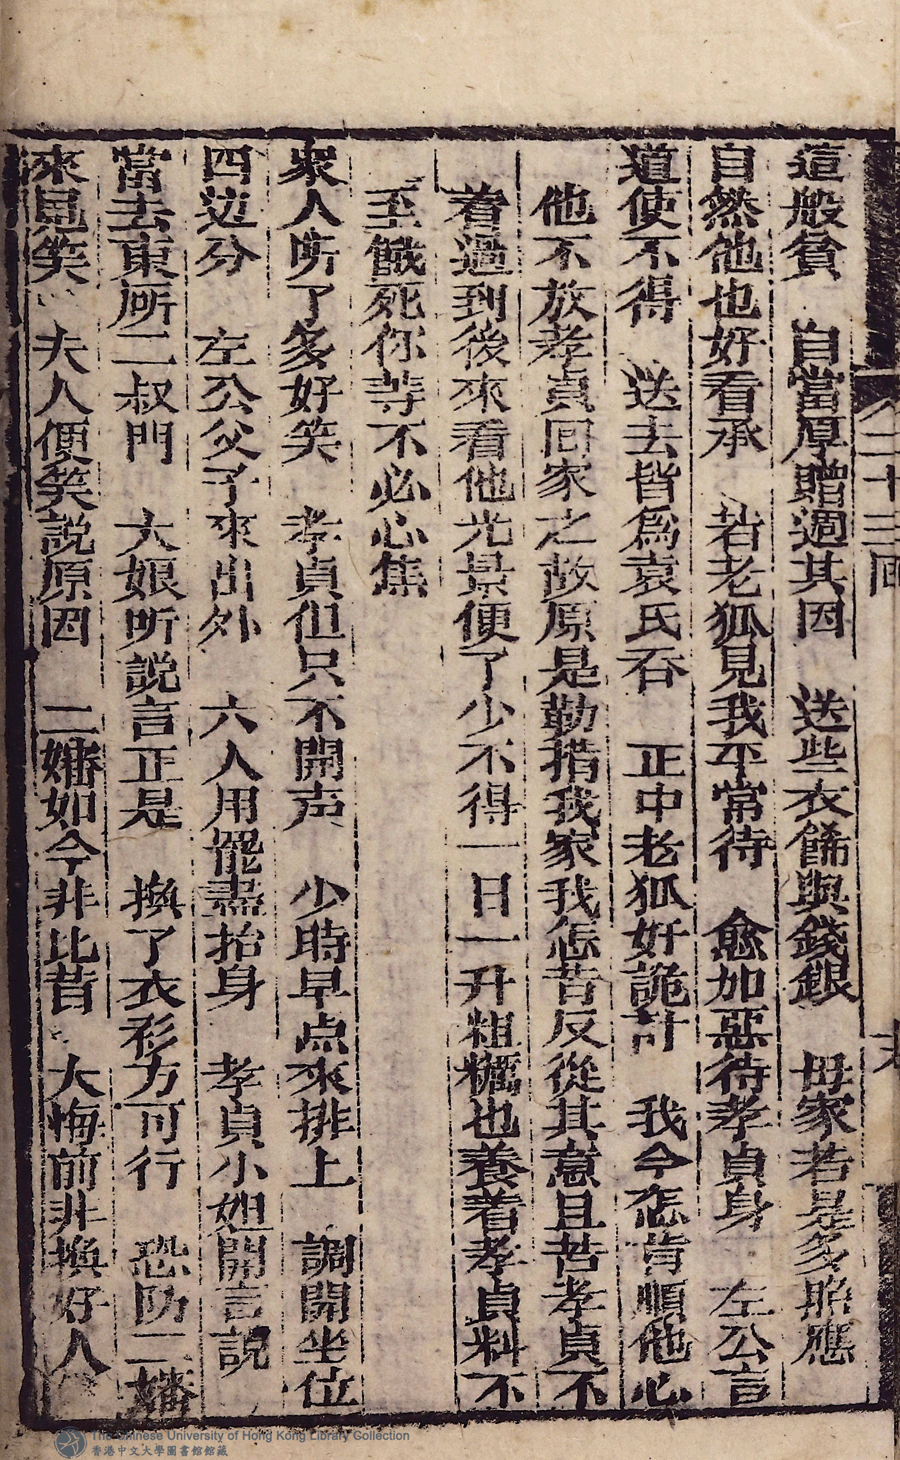 二十三回
這般貧　自當厚贈週其因　送些衣餙與錢銀　毋家若是多照應
自然他也好看承　若老狐見我平常待　愈加惡待孝貞身　左公言
道使不得　送去皆爲袁氏吞　正中老狐奸詭計　我今怎肯順他心
他不放孝貞回家之故原是勒掯我家我怎肯反從其意且苦孝貞不
着過到後來看他光景便了少不得一日一升粗糲也養着孝貞料不
至餓死你等不必心焦
衆人听了多好笑　孝貞但只不開声　少時早点來排上　調開坐位
四边分　左公父子來出外　六人用罷盡抬身　孝貞小姐開言說
當去東所二叔門　大娘听説言正是　換了衣衫方可行　恐防二嬸
來見笑　夫人便笑說原因　二嬸如今非比昔　大悔前非換好人
The Chinese University of Hong Kong Library Collection
香港中文大學圖書館館藏